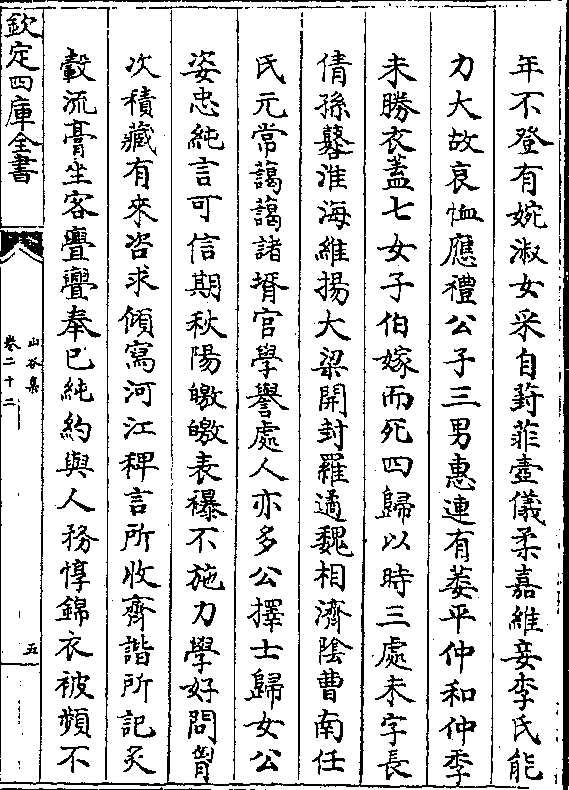 年不登有婉淑女采自葑菲壼儀柔嘉維妾李氏能
力大故哀恤應禮公子三男惠連有萎平仲和仲季
未勝衣蓋七女子伯嫁而死四歸以時三處未字長
倩孫鼛淮海維揚大梁開封羅適魏相濟陰曹南任
氏元常藹藹諸壻官學譽處人亦多公擇士歸女公
姿忠純言可信期秋陽皦皦表襮不施力學好問胷
次積藏有來咨求傾寫河江稗言所收齊諧所記炙
轂流膏坐客亹亹奉已純約與人務惇錦衣被頮不
欽定四庫全書
山谷集
卷二十二
五